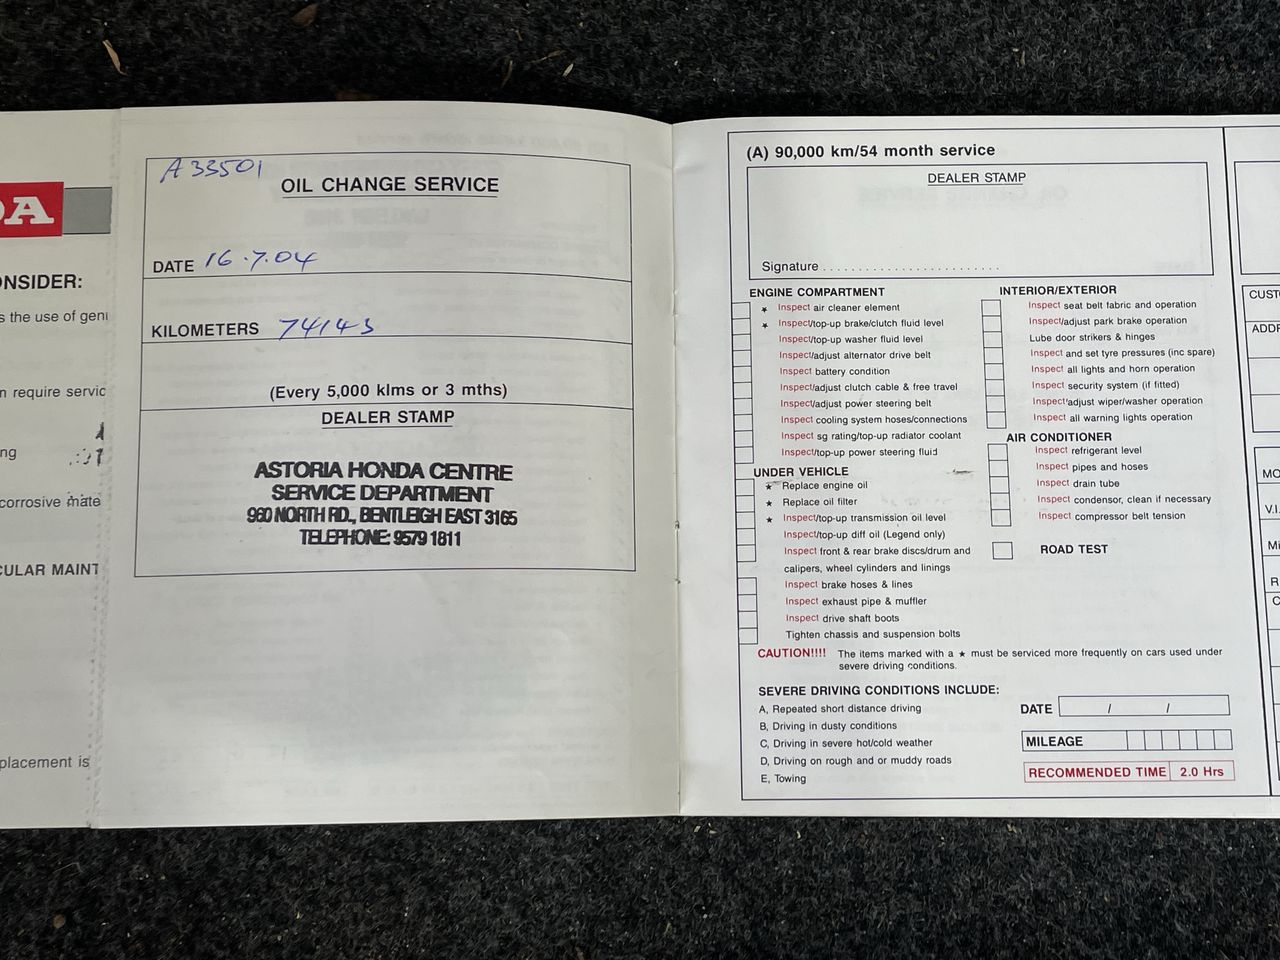 DA
ONSIDER:
s the use of genu
n require servic
ng
corrosive mate
CULAR MAINT
placement is
A33501
OIL CHANGE SERVICE
DATE 16.7.04
KILOMETERS 74143
(Every 5,000 klms or 3 mths)
DEALER STAMP
ASTORIA HONDA CENTRE
SERVICE DEPARTMENT
960 NORTH RD., BENTLEIGH EAST 3165
TELEPHONE: 9579 1811
(A) 90,000 km/54 month service
DEALER STAMP
Signature ..........................
ENGINE COMPARTMENT
★ Inspect air cleaner element
★ Inspect/top-up brake/clutch fluid level
Inspect/top-up washer fluid level
Inspect/adjust alternator drive belt
Inspect battery condition
Inspect/adjust clutch cable & free travel
Inspect/adjust power steering belt
Inspect cooling system hoses/connections
Inspect sg rating/top-up radiator coolant
Inspect/top-up power steering fluid
UNDER VEHICLE
★ Replace engine oil
★ Replace oil filter
★ Inspect/top-up transmission oil level
Inspect/top-up diff oil (Legend only)
Inspect front & rear brake discs/drum and
calipers, wheel cylinders and linings
Inspect brake hoses & lines
Inspect exhaust pipe & muffler
Inspect drive shaft boots
Tighten chassis and suspension bolts
INTERIOR/EXTERIOR
Inspect seat belt fabric and operation
Inspect/adjust park brake operation
Lube door strikers & hinges
Inspect and set tyre pressures (inc spare)
Inspect all lights and horn operation
Inspect security system (if fitted)
Inspect/adjust wiper/washer operation
Inspect all warning lights operation
AIR CONDITIONER
Inspect refrigerant level
Inspect pipes and hoses
Inspect drain tube
Inspect condensor, clean if necessary
Inspect compressor belt tension
ROAD TEST
CAUTION!!!! The items marked with a ★ must be serviced more frequently on cars used under
severe driving conditions.
SEVERE DRIVING CONDITIONS INCLUDE:
A, Repeated short distance driving
B, Driving in dusty conditions
C, Driving in severe hot/cold weather
D, Driving on rough and or muddy roads
E, Towing
DATE / /
MILEAGE
RECOMMENDED TIME 2.0 Hrs
CUSTO
ADDR
MO
V.I.
Mi
R
C